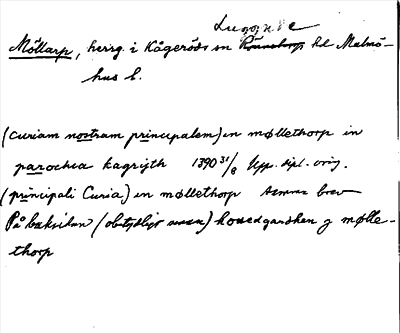 Luggude
Möllarp, herrg. i Kågeröds sn Rönneberg hd Malmö-
hus l.
(curiam nostram principalem) in møllethorp in
parochia kagrijth 1390 31/8 Upp. dipl. orig.
(principali Curia) in møllethorp samma brev
På baksidan (obetydligt senare) howedgardhen j mølle-
thorp